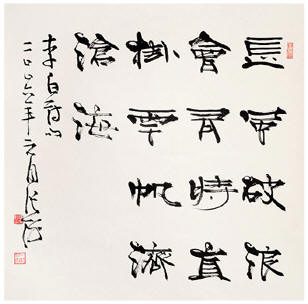 長風破浪
會有時直
掛雲帆濟
滄海
李白詩句
二〇〇六年元月